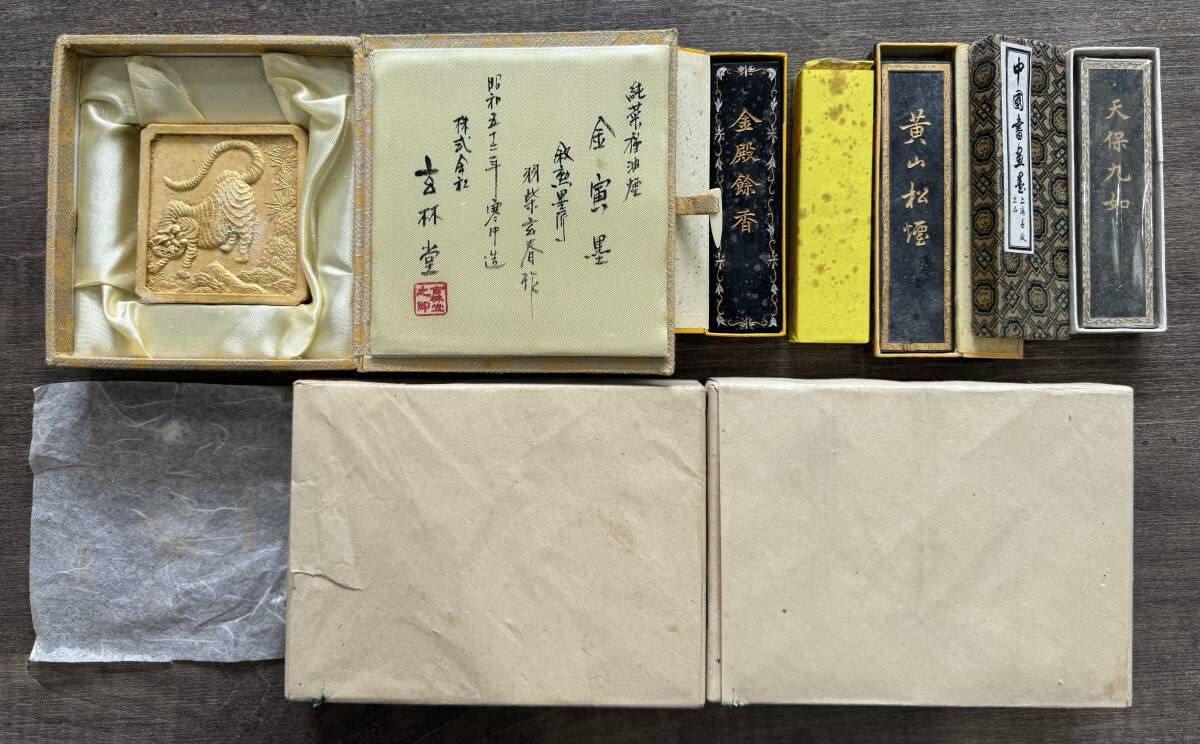 純菜種油煙
金寅墨
叙勲墨匠
羽柴玄春作
昭和五十三年 寒中造
株式会社
玄林堂
金殿餘香
黃山松煙
中國書畫墨
上海墨廠
出品
天保九如